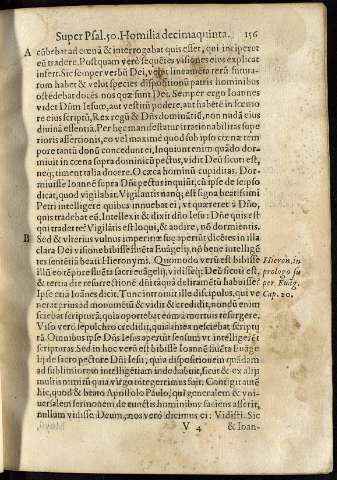 Super Psal. 50. Homilia decimaquinta. 156
A cũbebat ad cœnã & interrogabat quis esset, qui inciperet
eũ tradere. Postquam verò sequẽtes visiones eius explicat
inserit. Sic semper verbũ Dei, velut lineamẽta rerũ futura-
rum habet & velut species dispositionũ patris hominibus
ostẽdebat docẽs nos quæ sunt Dei. Semper ergo Ioannes
videt Dñm Iesum, aut vestitũ podere, aut habẽte in fœmo
re eius scriptũ, Rex regũ & Dñs dominãtiũ, non nudã eius
divinã essentiã. Per hęc manifestatur irrationabilitas supe
rioris assertionis, eo vel maximè quod sub ipso cœnæ tem
pore tantũ donũ concedunt ei, Inquiunt enim quãdo dor-
miuit in cœna supra dominicũ pectus, vidit Deũ sicuti est,
neq; timent talia docere. O cæca hominũ cupiditas. Dor-
miuisse Ioannẽ supra Dñi pectus inquiũt, cũ ipse de seipso
dicat, quod vigilabat. Vigilantis nanq; est signa beatissimi
Petri intelligere quibus innuebat ei, vt quæreret a Dño,
quis tradebat eũ. Intellexit & dixit dño Iesu: Dñe quis est
qui tradet te? Vigilãtis est loqui, & audire, nõ dormientis.
B Sed & vlterius vulnus imperitiæ suę aperiũt dicẽtes in illa
clara Dei visione bibisse fluẽta Euãgelij, nõ bene intelligẽ
tes sentẽtiã beati Hieronymi. Quomodo verũ est bibisse
illũ eo tẽpore fluẽta sacri euãgelij, vidisseq; Deũ sicuti est,
& tertia die resurrectionẽ dñi tãquã deliramẽtũ habuisse?
Ipse etiã Ioãnes dicit. Tunc introiuit ille discipulus, qui ve
nerat prius ad monumẽtũ & vidit & credidit, nondũ enim
sciebat scripturã, quia oportebat eum à mortuis resurgere.
Viso verò sepulchro credidit, quia antea nesciebat scriptu
rã Omnibus ipse Dñs Iesus aperuit sensum vt intelligerẽt
scripturas. Sed in hoc verũ est bibisse Ioannẽ fluẽta Euãge
lij de sacro pectore Dñi Iesu, quia dispositionem quãdam
ad sublimiorem intelligẽtiam indo habuit, sicut & ex alijs
multis nimirũ quia virgo integerrimus fuit. Contigit autẽ
hic, quod & beato Apostolo Paulo, qui generalem & vni-
uersalem sermonem de cunctis hominibus faciens asserit,
nullum vidisse Deum, nos verò dicimus ei: Vidisti. Sic
Hieron. in
prologo su
per Euãg.
Cap. 20.
V 4 & Ioan-